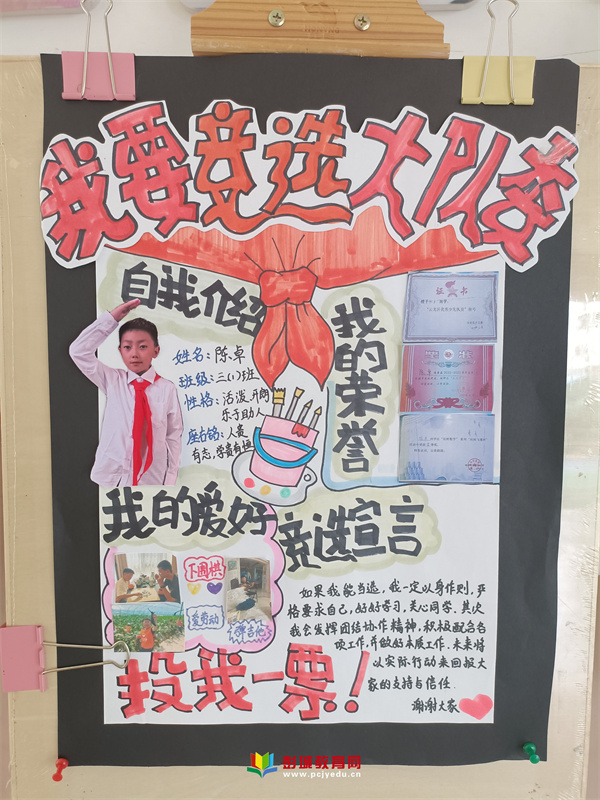 我要竞选大队委
自我介绍
姓名：陈卓
班级：三(1)班
性格：活泼、开朗
乐于助人
座右铭：人贵
有志，学贵有恒
我的荣誉
证 卡
我的爱好
下围棋
爱劳动
弹吉他
竞选宣言
如果我能当选，我一定以身作则，严
格要求自己，好好学习，关心同学。其次
我会发挥团结协作精神，积极配合各
项工作，并做好本质工作。未来将
以实际行动来回报大
家的支持与信任.
谢谢大家
投我一票！
彭城教育网
www.pcjyedu.cn